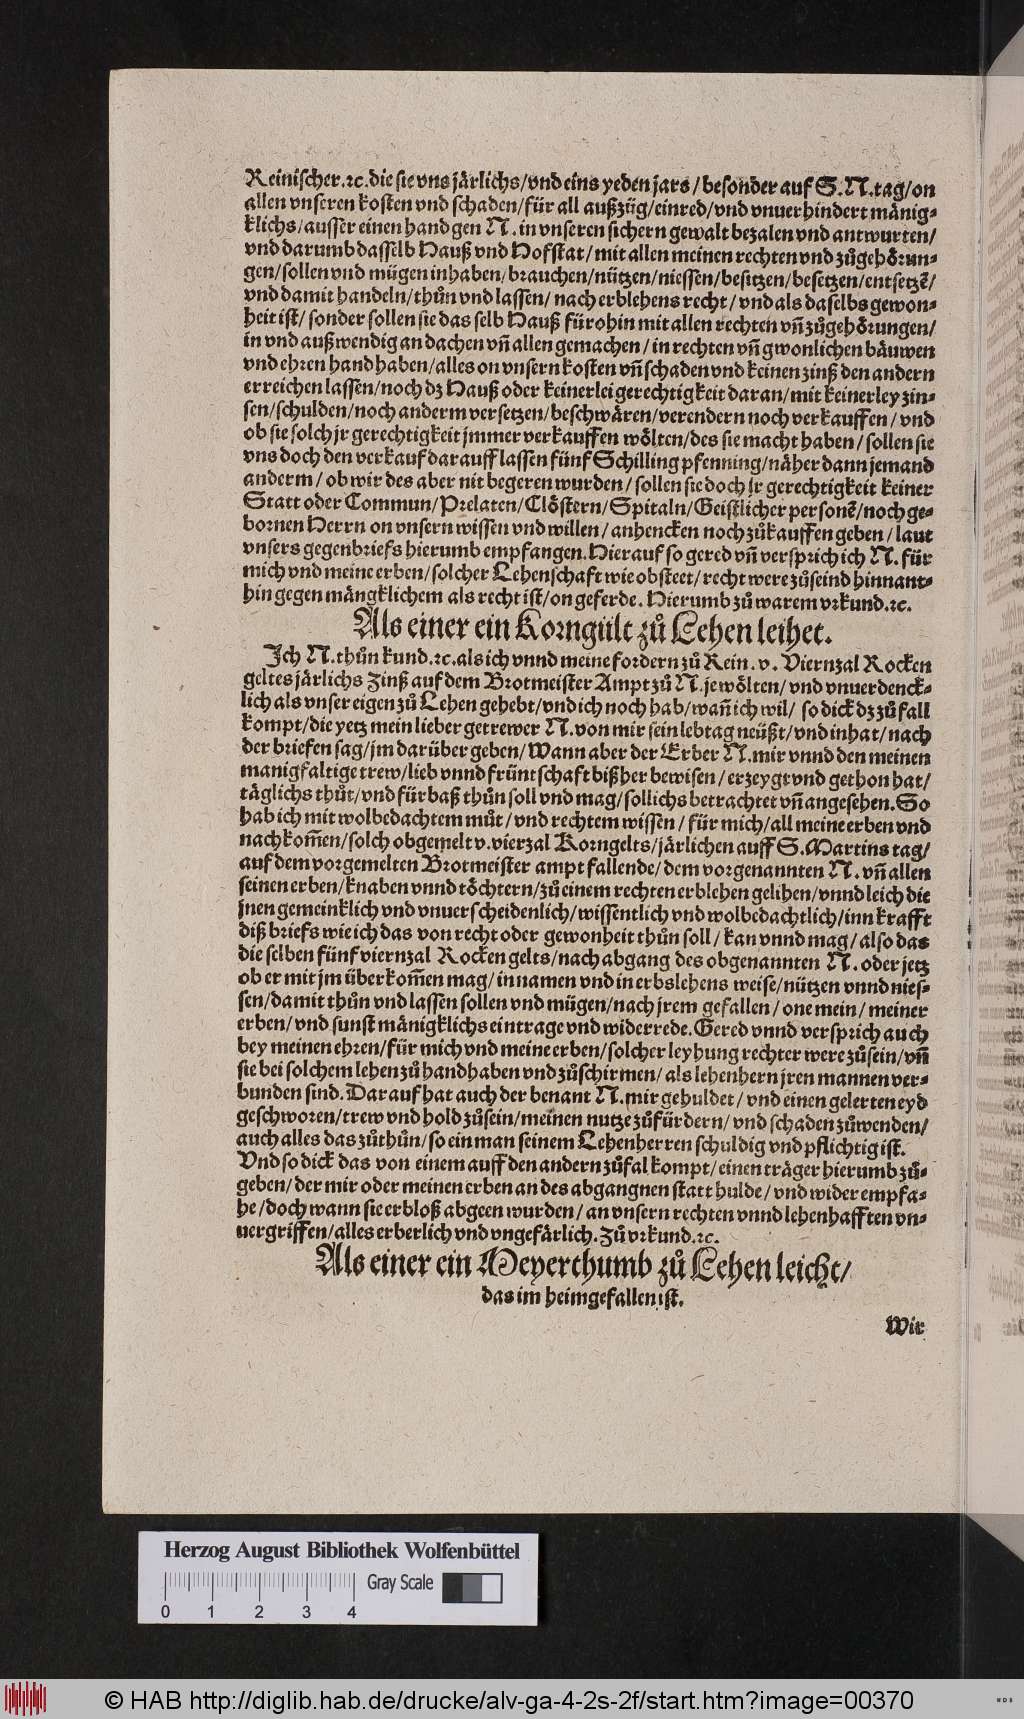 Reinischer.ꝛc.die sie vns jårlichs/vnd eins yeden jars/besonder auf S.N.tag/on
allen vnseren kosten vnd schaden/für all außzüg/einred/vnd vnuerhindert månig⸗
klichs/ausser einen hand gen N. in vnseren sichern gewalt bezalen vnd antwurten/
vnd darumb dasselb Hauß vnd Hofstat/mit allen meinen rechten vnd zůgehörun⸗
gen/sollen vnd mügen inhaben/brauchen/nützen/niessen/besitzen/besetzen/entsetzē/
vnd damit handeln/thůn vnd lassen/ nach erblehens recht/ vnd als daselbs gewon⸗
heit ist/ sonder sollen sie das selb Hauß fürohin mit allen rechten vñ zůgehörungen/
in vnd außwendig an dachen vñ allen gemachen/ in rechten vñ gwonlichen båuwen
vnd ehren handhaben/alles on vnsern kosten vñ schaden vnd keinen zinß den andern
erreichen lassen/noch dz Hauß oder keinerlei gerechtigkeit daran/mit keinerley zin⸗
sen/schulden/noch anderm versetzen/beschwåren/verendern noch verkauffen/ vnd
ob sie solch jr gerechtigkeit jmmer verkauffen wölten/des sie macht haben/ sollen sie
vns doch den verkauf darauff lassen fünf Schilling pfenning/nåher dann jemand
anderm/ ob wir des aber nit begeren wurden/ sollen sie doch jr gerechtigkeit keiner
Statt oder Commun/Prelaten/Clöstern/Spitaln/Geistlicher personē/noch ge⸗
bornen Herrn on vnsern wissen vnd willen/ anhencken noch zůkauffen geben/ laut
vnsers gegenbriefs hierumb empfangen. Hierauf so gered vñ versprich ich N. für
mich vnd meine erben/solcher Lehenschaft wie obsteet/ recht were zůseind hinnant⸗
hin gegen mångklichem als recht ist/on geferde. Hierumb zů warem vrkund.ꝛc.
Als einer ein Korngült zů Lehen leihet.
Ich N.thůn kund.ꝛc.als ich vnnd meine fordern zů Rein. v. Viernzal Rocken
geltes jårlichs Zinß auf dem Brotmeister Ampt zů N.je wölten/ vnd vnuerdenck⸗
lich als vnser eigen zů Lehen gehebt/vnd ich noch hab/wañ ich wil/ so dick dz zů fall
kompt/die yetz mein lieber getrewer N.von mir sein lebtag neüßt/vnd inhat/ nach
der briefen sag/jm darüber geben/Wann aber der Erber N.mir vnnd den meinen
manigfaltige trew/lieb vnnd früntschaft bißher bewisen/ erzeygt vnd gethon hat/
tåglichs thůt/vnd fürbaß thůn soll vnd mag/sollichs betrachtet vñ angesehen.So
hab ich mit wolbedachtem můt/ vnd rechtem wissen/ für mich/all meine erben vnd
nachkom̄en/solch obgemelt v.vierzal Korngelts/jårlichen auff S.Martins tag/
auf dem vorgemelten Brotmeister ampt fallende/dem vorgenannten N.vñ allen
seinen erben/knaben vnnd töchtern/zů einem rechten erblehen gelihen/vnnd leich die
jnen gemeinklich vnd vnuerscheidenlich/wissentlich vnd wolbedachtlich/inn krafft
diß briefs wie ich das von recht oder gewonheit thůn soll/ kan vnnd mag/ also das
die selben fünf viernzal Rocken gelts/nach abgang des obgenannten N.oder jetz
ob er mit jm überkom̄en mag/ in namen vnd in erbslehens weise/nützen vnnd nies⸗
sen/damit thůn vnd lassen sollen vnd mügen/nach jrem gefallen/ one mein/ meiner
erben/ vnd sunst månigklichs eintrag e vnd widerrede.Gered vnnd versprich auch
bey meinen ehren/für mich vnd meine erben/solcher leyhung rechter were zůsein/vñ
sie bei solchem lehen zů handhaben vnd zůschirmen/ als lehenhern jren mannen ver⸗
bunden sind.Darauf hat auch der benant N.mir gehuldet/ vnd einen gelerten eyd
geschworen/trew vnd hold zůsein/meinen nutze zůfürdern/ vnd schaden zůwenden/
auch alles das zůthůn/so ein man seinem Lehenherren schuldig vnd pflichtig ist.
Vnd so dick das von einem auff den andern zůfal kompt/einen tråger hierumb zů⸗
geben/der mir oder meinen erben an des abgangnen statt hulde/ vnd wider empfa⸗
he/doch wann sie erbloß abgeen wurden/ an vnsern rechten vnnd lehenhafften vn⸗
uergriffen/alles erberlich vnd vngefårlich.Zů vrkund.ꝛc.
Als einer ein Meyerthumb zů Lehen leicht/
das im heimgefallen ist.
Wir
Herzog August Bibliothek Wolfenbüttel
Gray Scale
0 1 2 3 4
© HAB http://diglib.hab.de/drucke/alv-ga-4-2s-2f/start.htm?image=00370